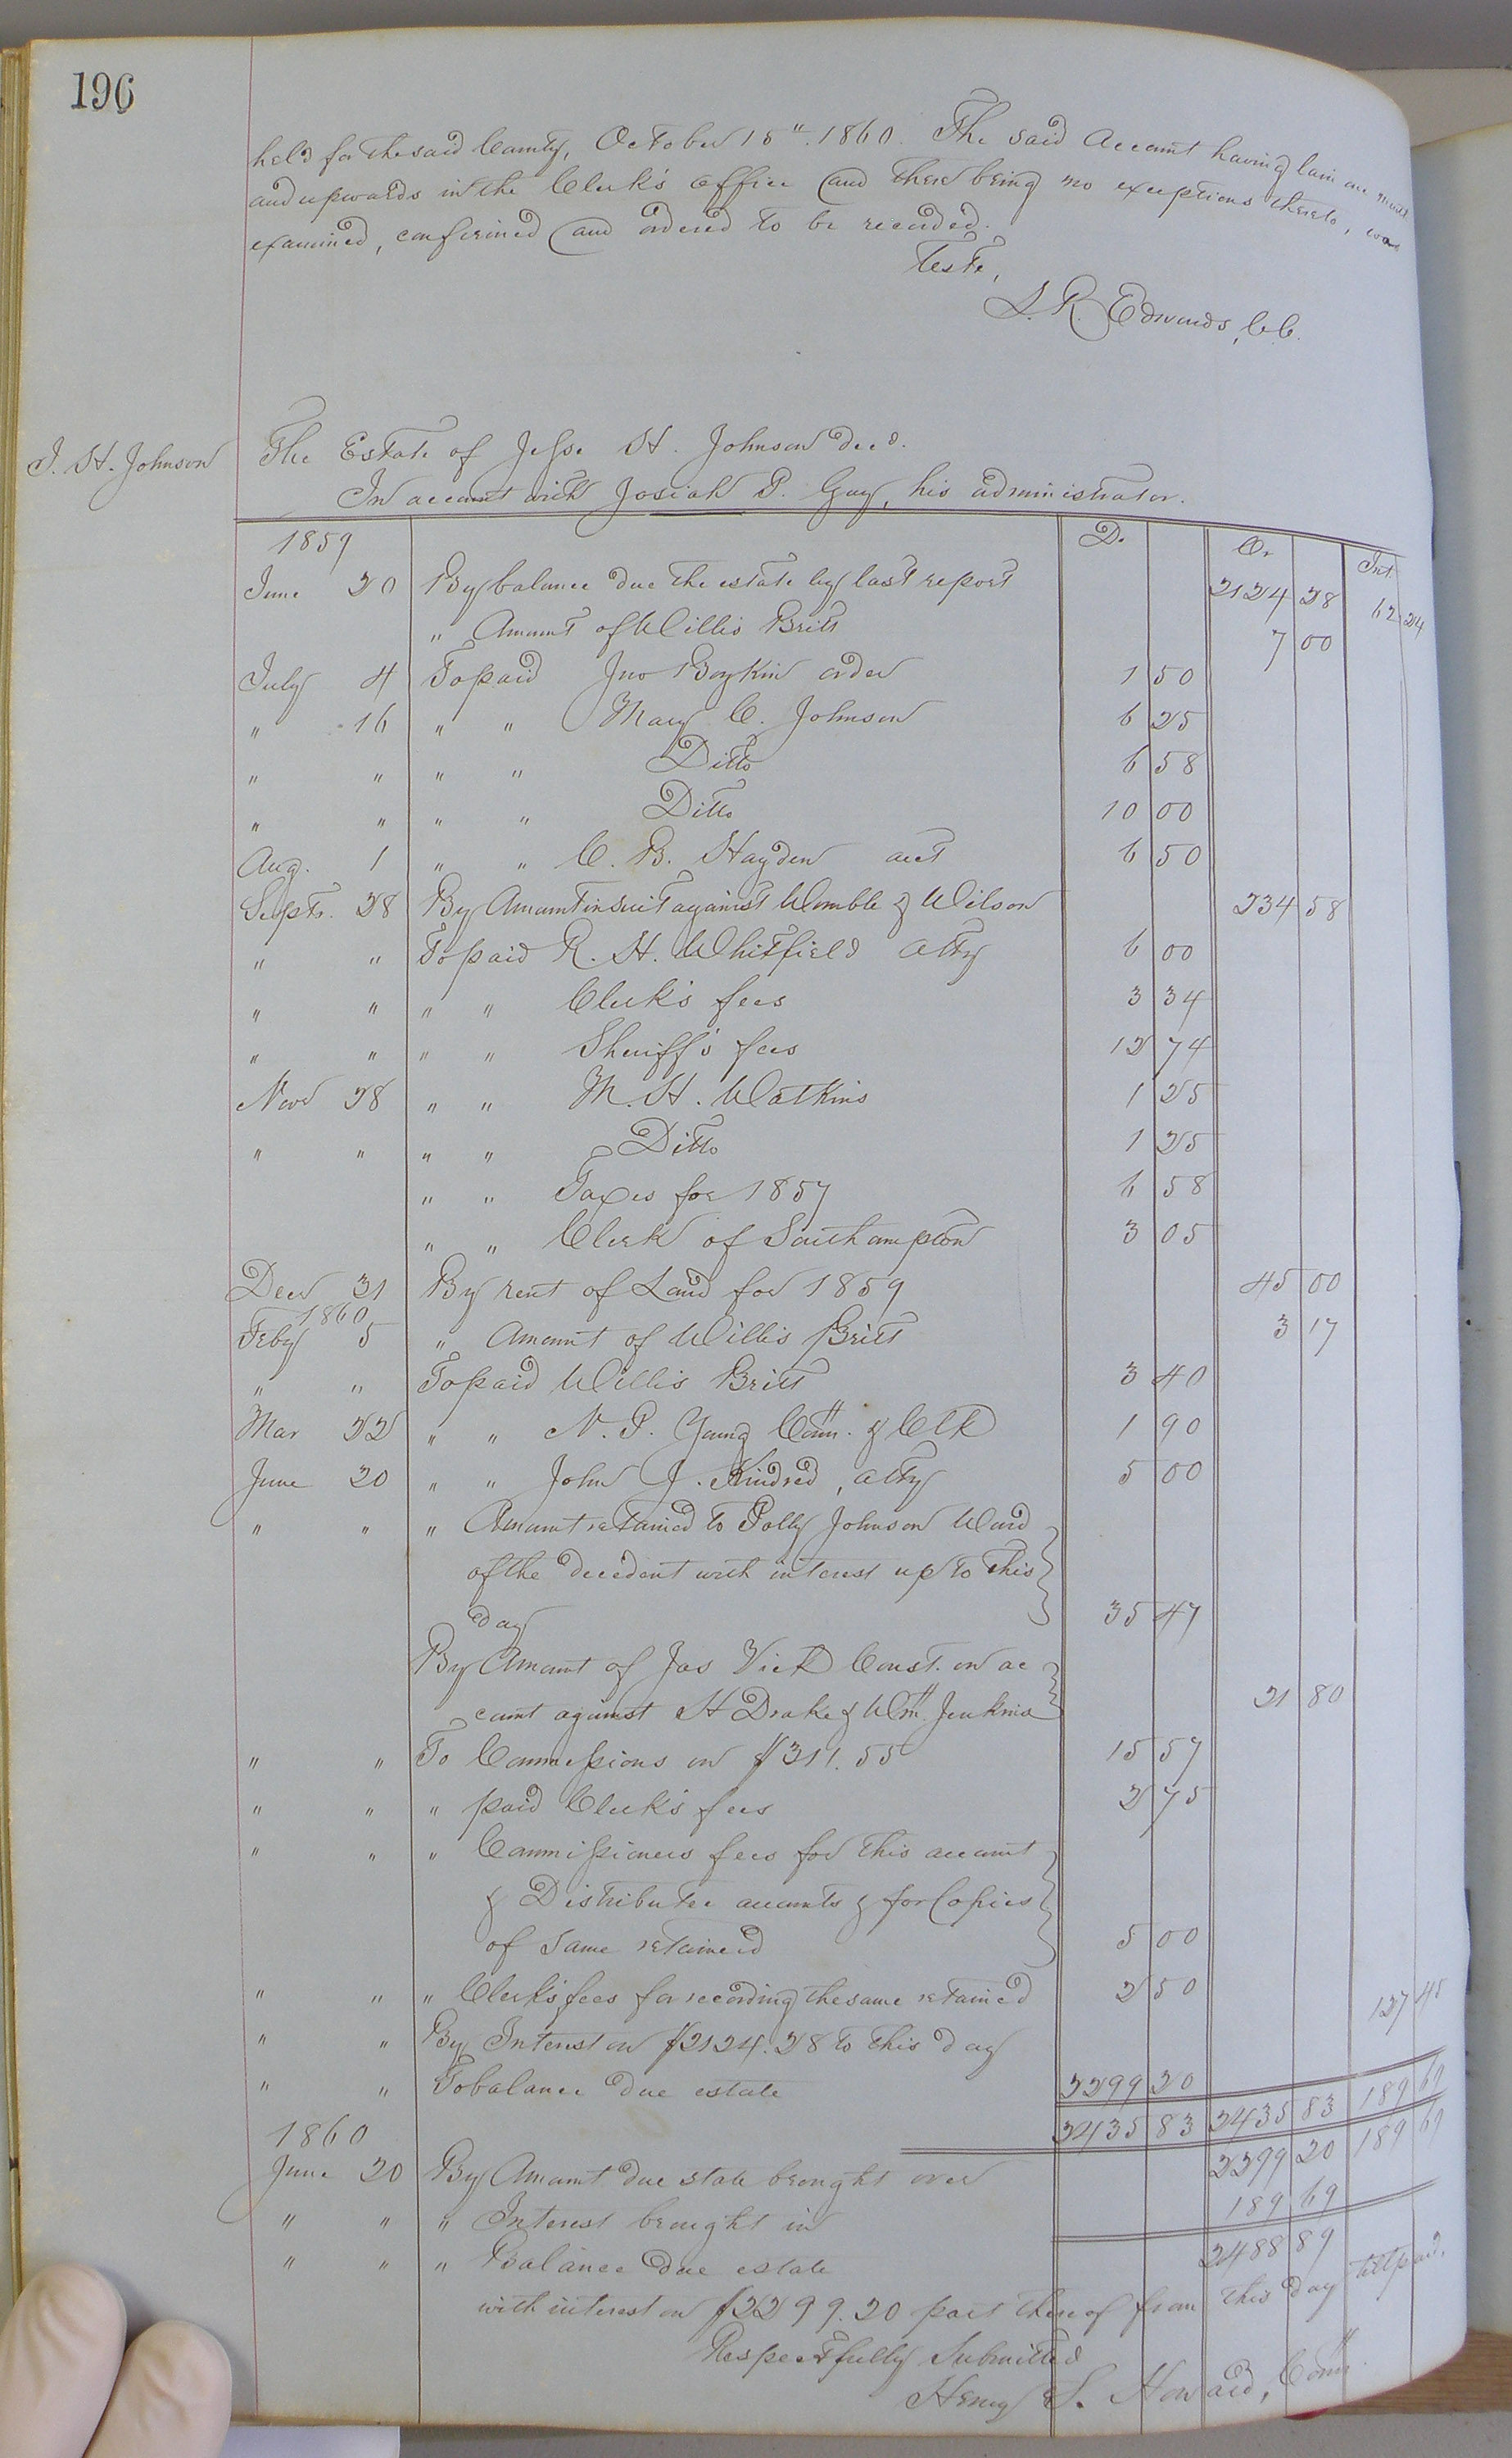 196
held for the said County, October 15". 1860. The said Account having lain one month
and upwards in the Clerk's office and there being no exceptions thereto, was
examined, confirmed and ordered to be recorded.
Teste,
L. R. Edwards, C.C.
J. H. Johnson
The Estate of Jesse H. Johnson decd.
In account with Josiah P. Gay, his administrator.
1859 D. Cr Int
June 20 By balance due the estate by last report 2124 28 62 24
" Amount of Willis Britt 7 00
July 4 To paid Jno Boykin order 1 50
" 16 " " Mary C. Johnson 6 25
" " " " Ditto 6 58
" " " " Ditto 10 00
Aug. 1 " " C. B. Hayden acct 6 50
Septr. 28 By Amount in suit against Womble & Wilson 234 58
" " To paid R. H. Whitfield Atty 6 00
" " " " Clerk's fees 3 34
" " " " Sheriff's fees 12 74
Novr 28 " " M. H. Watkins 1 25
" " " " Ditto 1 25
" " Taxes for 1857 6 58
" " Clerk of Southampton 3 05
Decr 31 By rent of Land for 1859 45 00
1860
Feby 5 " Amount of Willis Britt 3 17
" " To paid Willis Britt 3 40
Mar 22 " " N. P. Young Comr. & Clk 1 90
June 20 " " John J. Kindred, atty 5 00
" " " Amount retained to Polly Johnson Ward
of the decedent with interest up to this
day 35 47
By Amount of Jas Vick Const. on ac
count against H Drake & Wm. Jenkins 21 80
" " To Commissions on $311.55 15 57
" " " paid Clerk's fees 2 75
" " " Commissioners fees for this account
& Distributee accounts & for Copies
of same retained 5 00
" " " Clerk's fees for recording the same retained 2 50
" " By Interest on $2124.28 to this day 127 45
" " To balance due estate 2299 20
2435 83 2435 83 189 69
1860
June 20 By Amount due state brought over 2299 20 189 69
" " " Interest brought in 189 69
" " " Balance due estate 2488 89
with interest on $2299.20 part thereof from this day till paid.
Respectfully Submitted
Henry S. Howard, Comr.